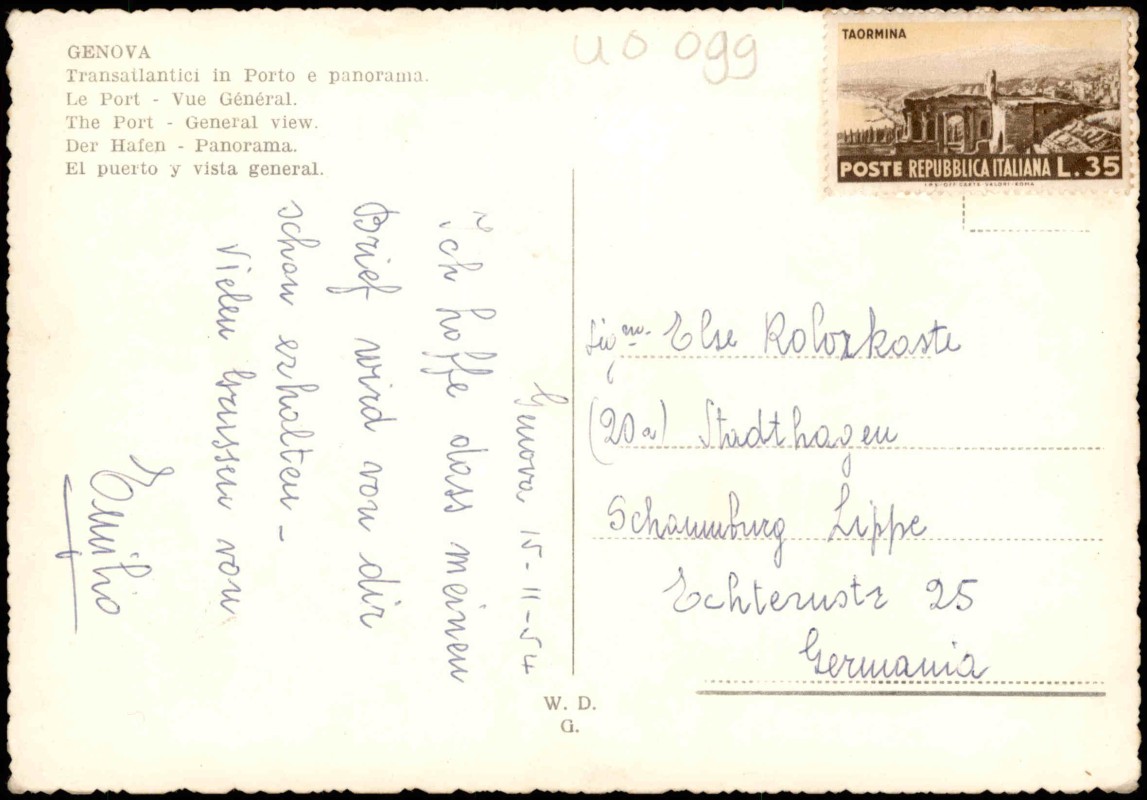 GENOVA
Transatlantici in Porto e panorama.
Le Port - Vue Général.
The Port - General view.
Der Hafen - Panorama.
El puerto y vista general.
uo 099
TAORMINA
POSTE REPUBBLICA ITALIANA L.35
I.P.S. OFF. CARTE VALORI-ROMA
Genova 15-11-54
Ich hoffe dass meinen
Brief wird von dir
schon erhalten -
Vielen Grussen von
Emilio
Sig.na Else
(20a) Stadthagen
Schaumburg Lippe
Echternstr 25
Germania
W. D.
G.